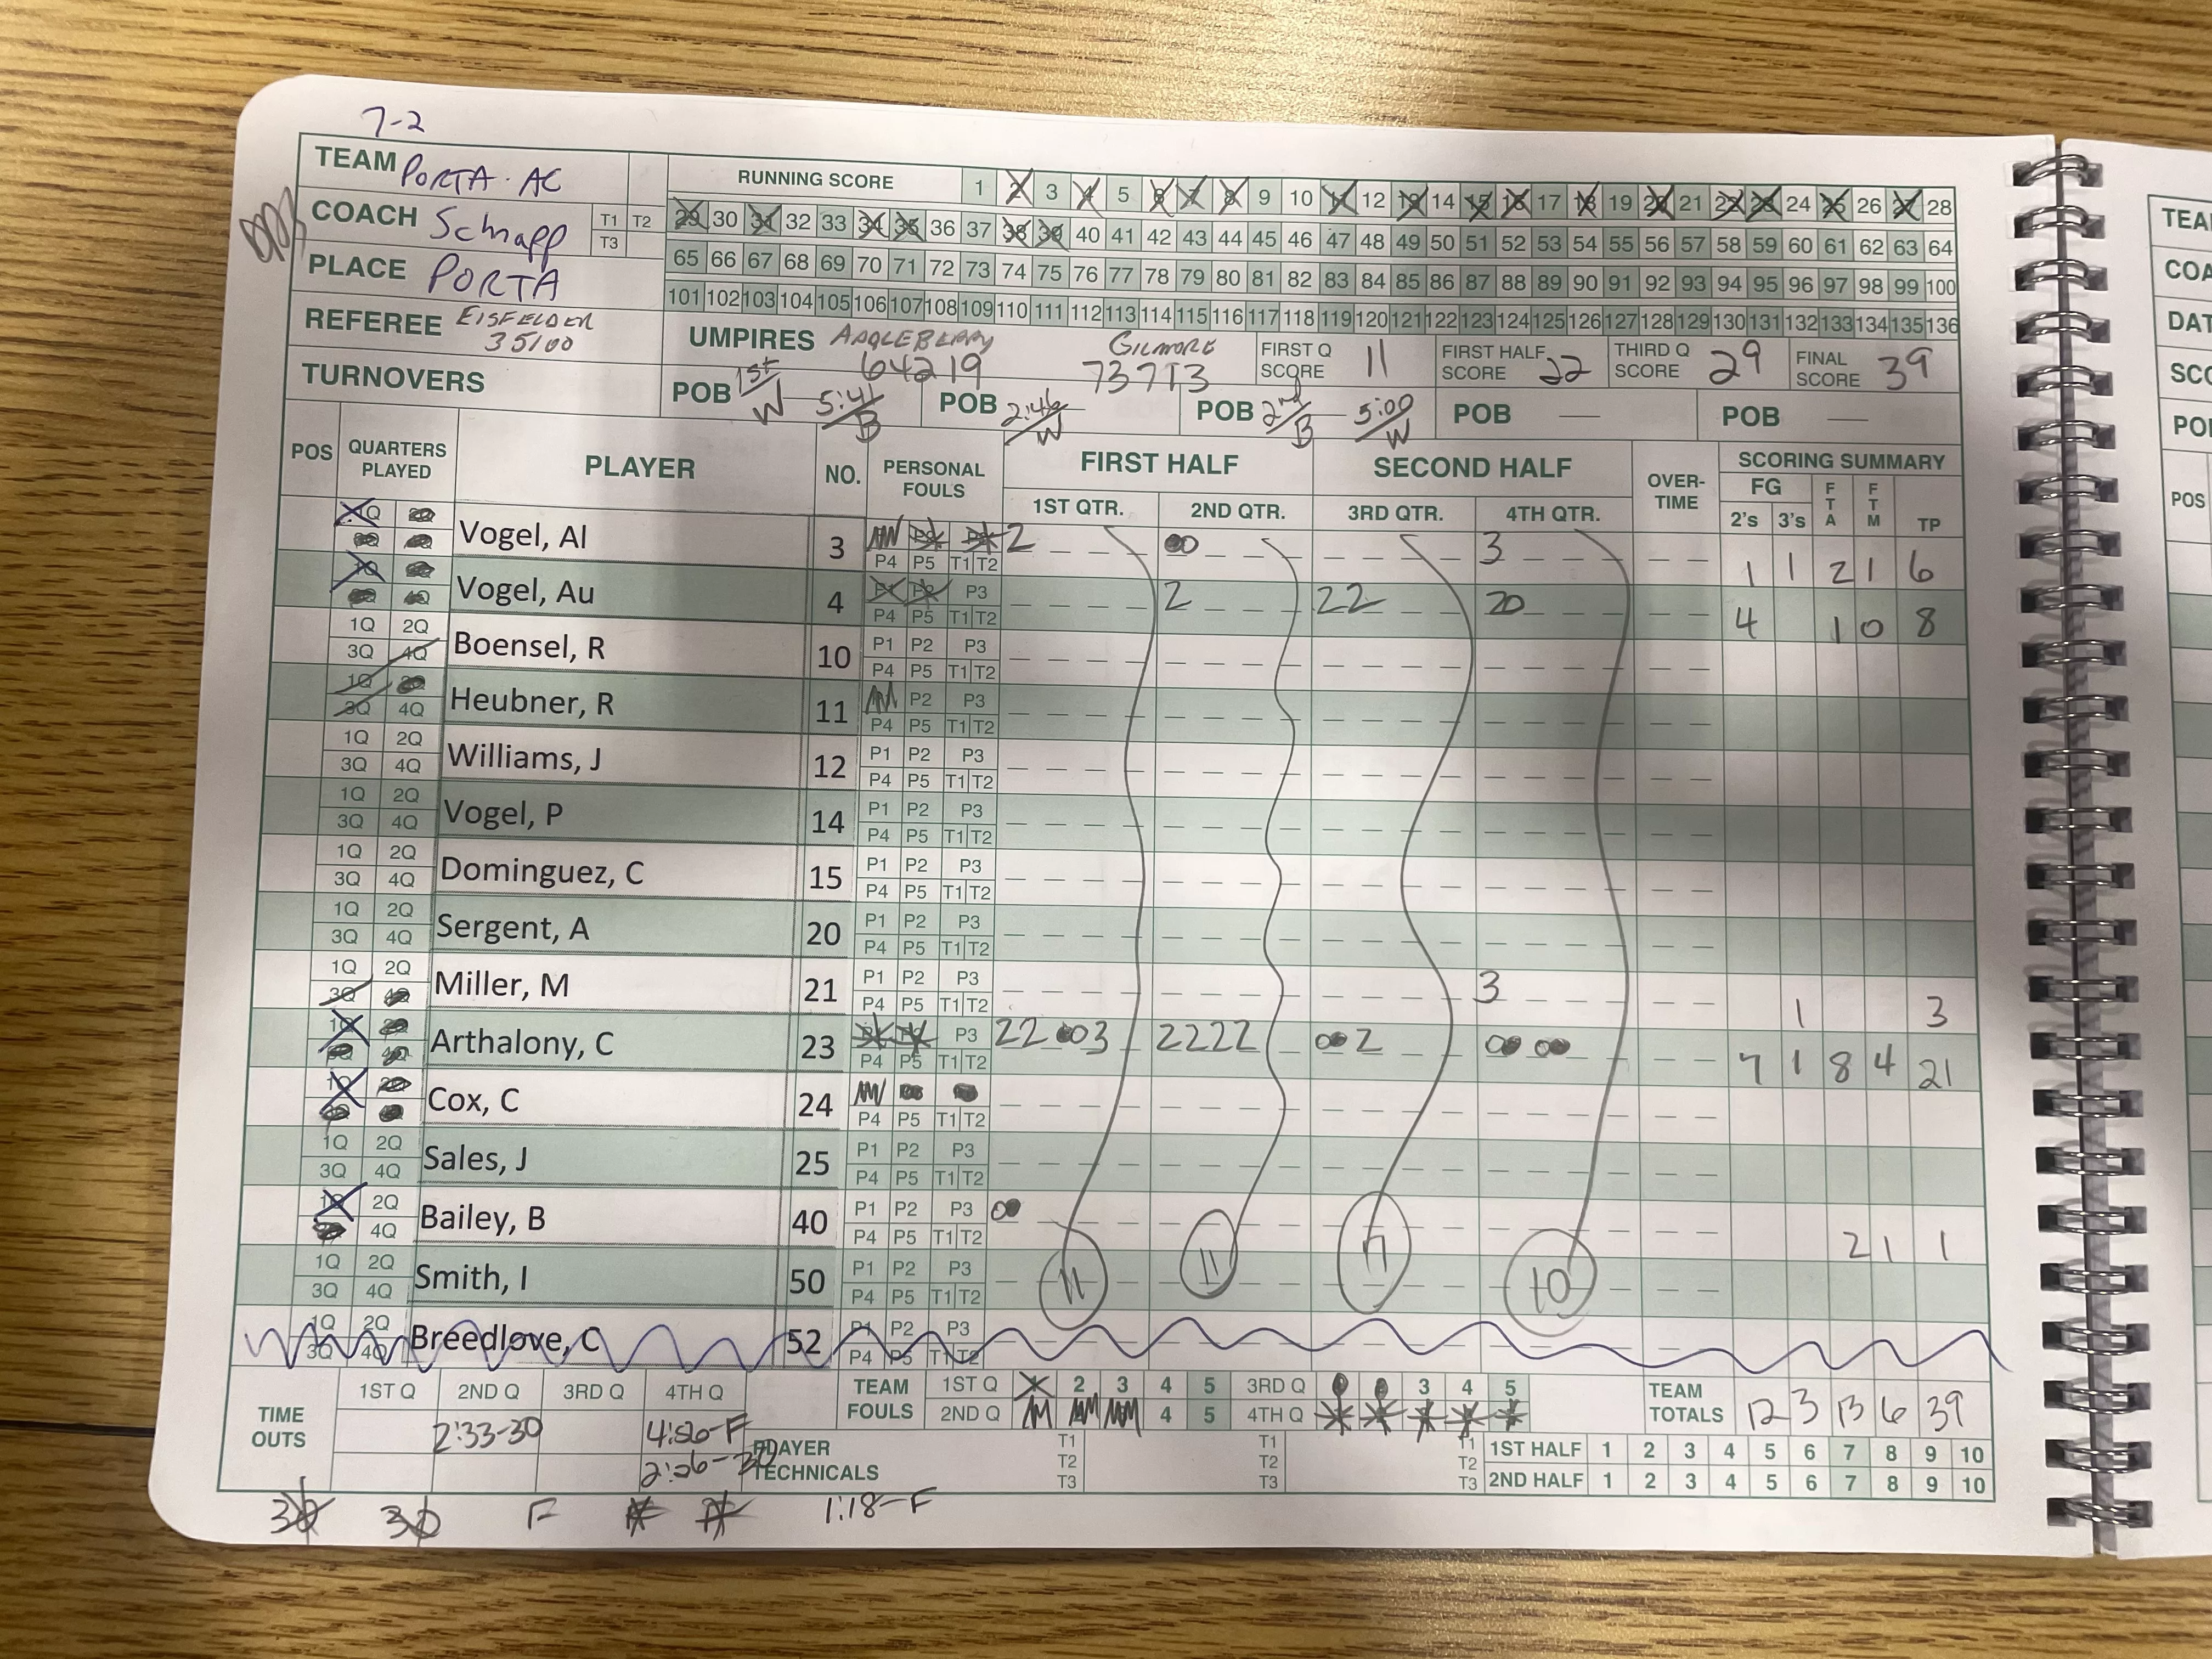 7-2
TEAM PORTA · AC
COACH Schnapp T1 T2 T3
PLACE PORTA
REFEREE EISFELDER 35100
TURNOVERS
RUNNING SCORE 1 2 3 4 5 6 7 8 9 10 11 12 13 14 15 16 17 18 19 20 21 22 23 24 25 26 27 28
29 30 31 32 33 34 35 36 37 38 39 40 41 42 43 44 45 46 47 48 49 50 51 52 53 54 55 56 57 58 59 60 61 62 63 64
65 66 67 68 69 70 71 72 73 74 75 76 77 78 79 80 81 82 83 84 85 86 87 88 89 90 91 92 93 94 95 96 97 98 99 100
101 102 103 104 105 106 107 108 109 110 111 112 113 114 115 116 117 118 119 120 121 122 123 124 125 126 127 128 129 130 131 132 133 134 135 136
UMPIRES 64219 GILMORE 73713 FIRST Q SCORE 11 FIRST HALF SCORE 22 THIRD Q SCORE 29 FINAL SCORE 39
POB 1st/W 5:41/B POB 2:46/W POB 2nd/B 5:00/W POB — POB —
POS QUARTERS PLAYED PLAYER NO. PERSONAL FOULS FIRST HALF SECOND HALF OVER-TIME SCORING SUMMARY
1ST QTR. 2ND QTR. 3RD QTR. 4TH QTR. FG 2's 3's FTA FTM TP
Vogel, Al 3 P4 P5 T1 T2 2 3 1 1 2 1 6
Vogel, Au 4 P3 P4 P5 T1 T2 2 22 20 4 1 0 8
1Q 2Q 3Q 4Q Boensel, R 10 P1 P2 P3 P4 P5 T1 T2
1Q 3Q 4Q Heubner, R 11 P2 P3 P4 P5 T1 T2
1Q 2Q 3Q 4Q Williams, J 12 P1 P2 P3 P4 P5 T1 T2
1Q 2Q 3Q 4Q Vogel, P 14 P1 P2 P3 P4 P5 T1 T2
1Q 2Q 3Q 4Q Dominguez, C 15 P1 P2 P3 P4 P5 T1 T2
1Q 2Q 3Q 4Q Sergent, A 20 P1 P2 P3 P4 P5 T1 T2
1Q 2Q 3Q 4Q Miller, M 21 P1 P2 P3 P4 P5 T1 T2 3 1 3
Arthalony, C 23 P3 P4 P5 T1 T2 22 3 2222 2 7 1 8 4 21
Cox, C 24 P4 P5 T1 T2
1Q 2Q 3Q 4Q Sales, J 25 P1 P2 P3 P4 P5 T1 T2
2Q 4Q Bailey, B 40 P1 P2 P3 P4 P5 T1 T2 2 1 1
1Q 2Q 3Q 4Q Smith, I 50 P1 P2 P3 P4 P5 T1 T2 11 11 7 10
1Q 2Q 3Q 4Q Breedlove, C 52 P1 P2 P3 P4 P5 T1 T2
TIME OUTS 1ST Q 2ND Q 3RD Q 4TH Q
2:33-30 4:56-F
2:26-30
TEAM FOULS 1ST Q 1 2 3 4 5 3RD Q 3 4 5
2ND Q 4 5 4TH Q
TEAM TOTALS 12 3 13 6 39
PLAYER TECHNICALS T1 T2 T3 T1 T2 T3 T1 T2 T3
1ST HALF 1 2 3 4 5 6 7 8 9 10
2ND HALF 1 2 3 4 5 6 7 8 9 10
30 30 F F F 1:18-F
TEA
COA
DAT
SCO
PO
POS